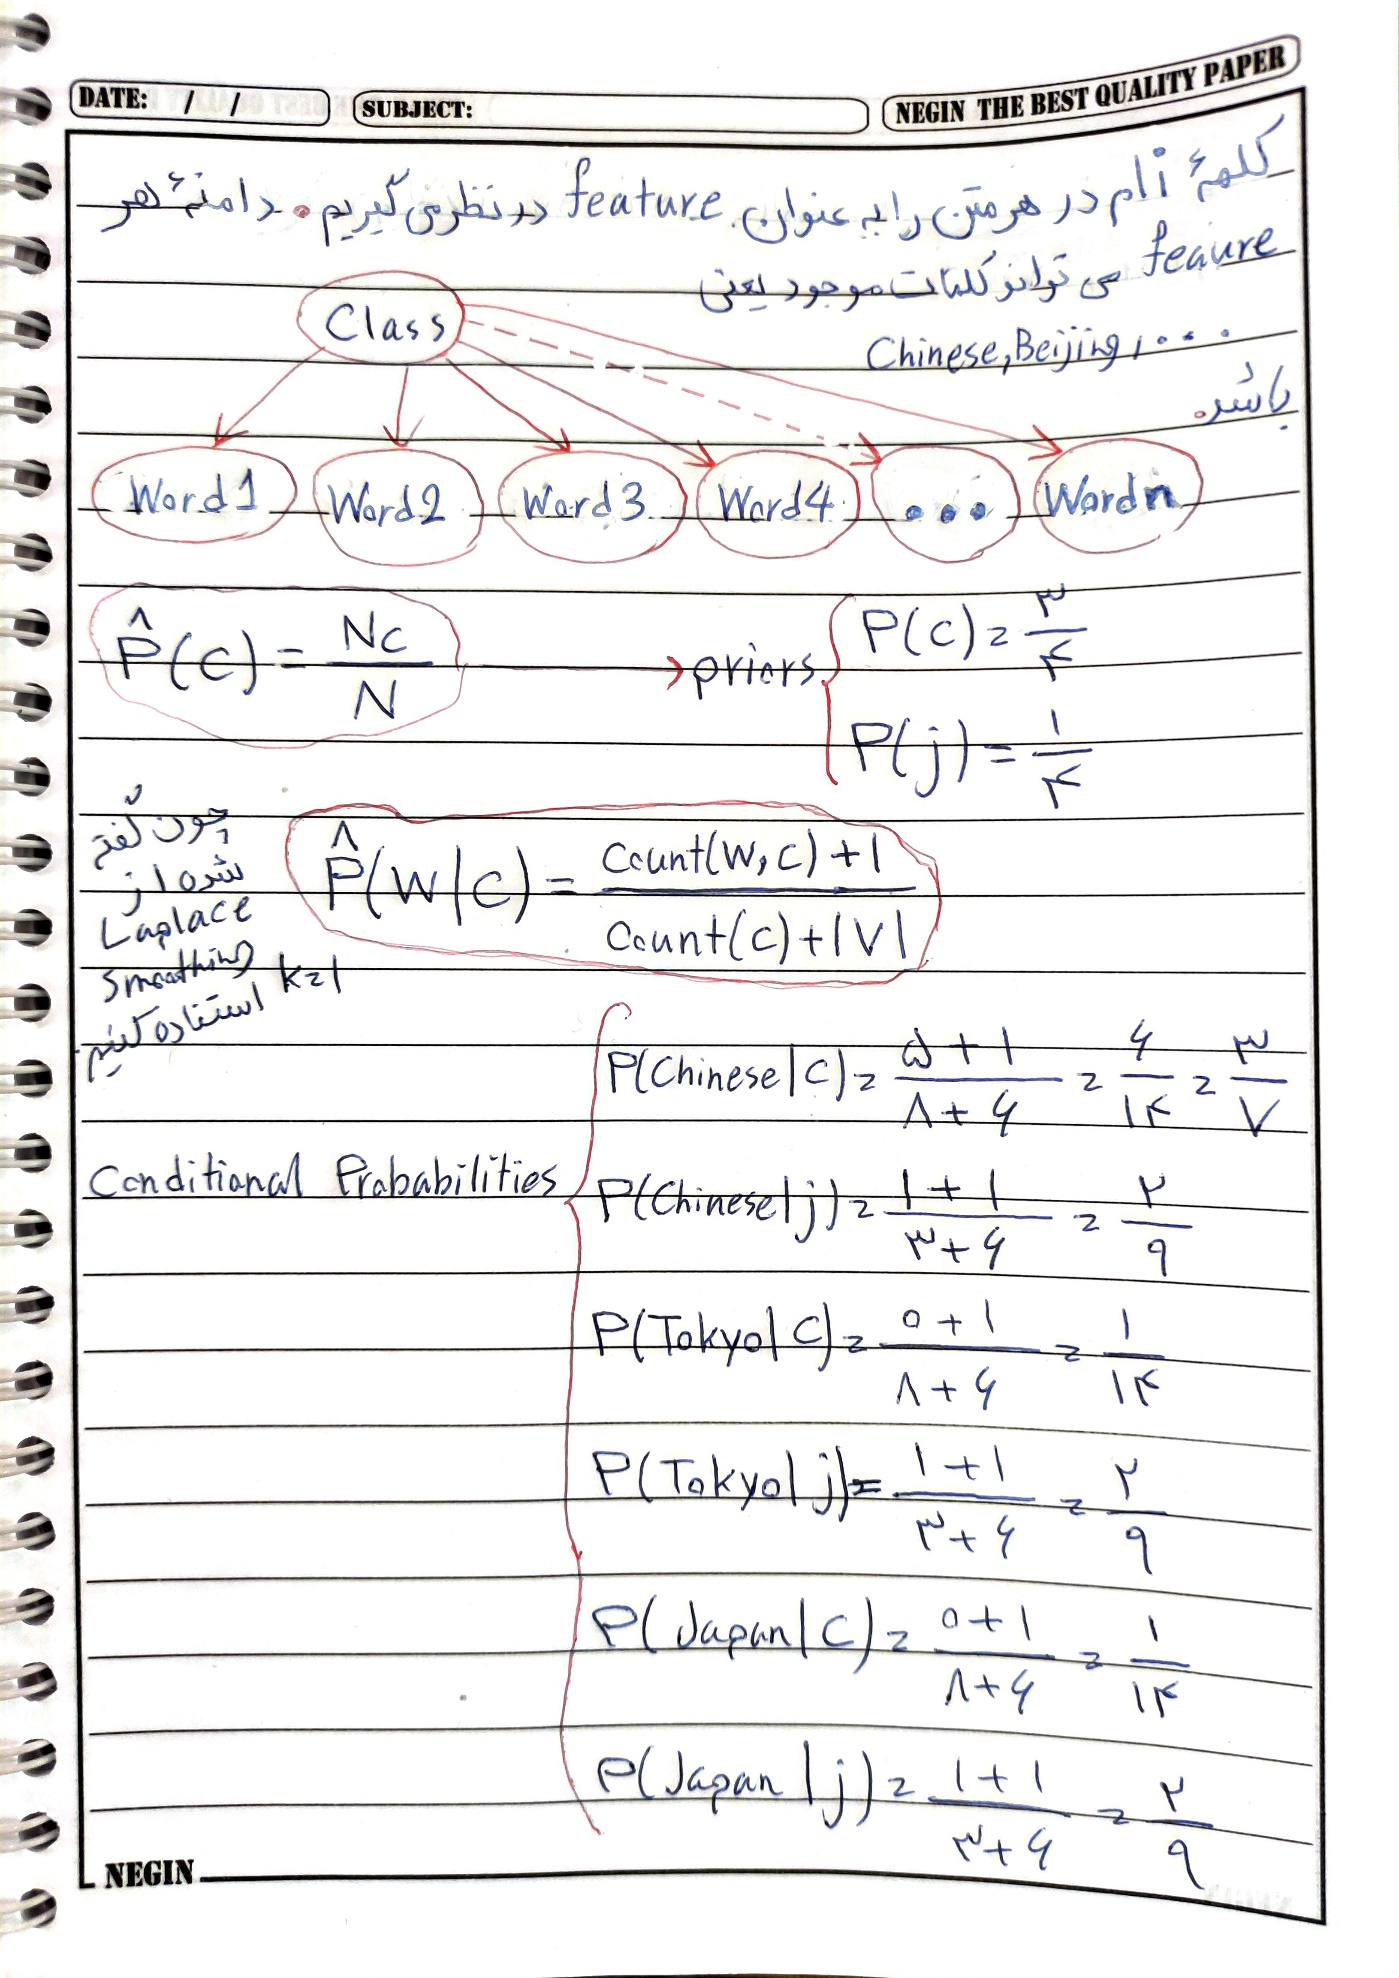 DATE: / /
SUBJECT:
NEGIN THE BEST QUALITY PAPER
کلمهٔ iام در هر متن را به عنوان feature در نظر می گیریم. دامنهٔ هر
feaure می تواند کلمات موجود یعنی
Chinese, Beijing, ...
باشد.
Class
Word1 Word2 Word3 Word4 ... Wordn
P̂(c) = Nc / N → priors
P(c) = ۳/۴
P(j) = ۱/۴
چون گفته
شده از
Laplace
Smoothing k=1
استفاده کنیم
P̂(w|c) = Count(w,c)+1 / Count(c)+|V|
Conditional Probabilities
P(Chinese|C) = ۵+۱ / ۸+۶ = ۶/۱۴ = ۳/۷
P(Chinese|j) = ۱+۱ / ۳+۶ = ۲/۹
P(Tokyo|C) = ۰+۱ / ۸+۶ = ۱/۱۴
P(Tokyo|j) = ۱+۱ / ۳+۶ = ۲/۹
P(Japan|C) = ۰+۱ / ۸+۶ = ۱/۱۴
P(Japan|j) = ۱+۱ / ۳+۶ = ۲/۹
NEGIN